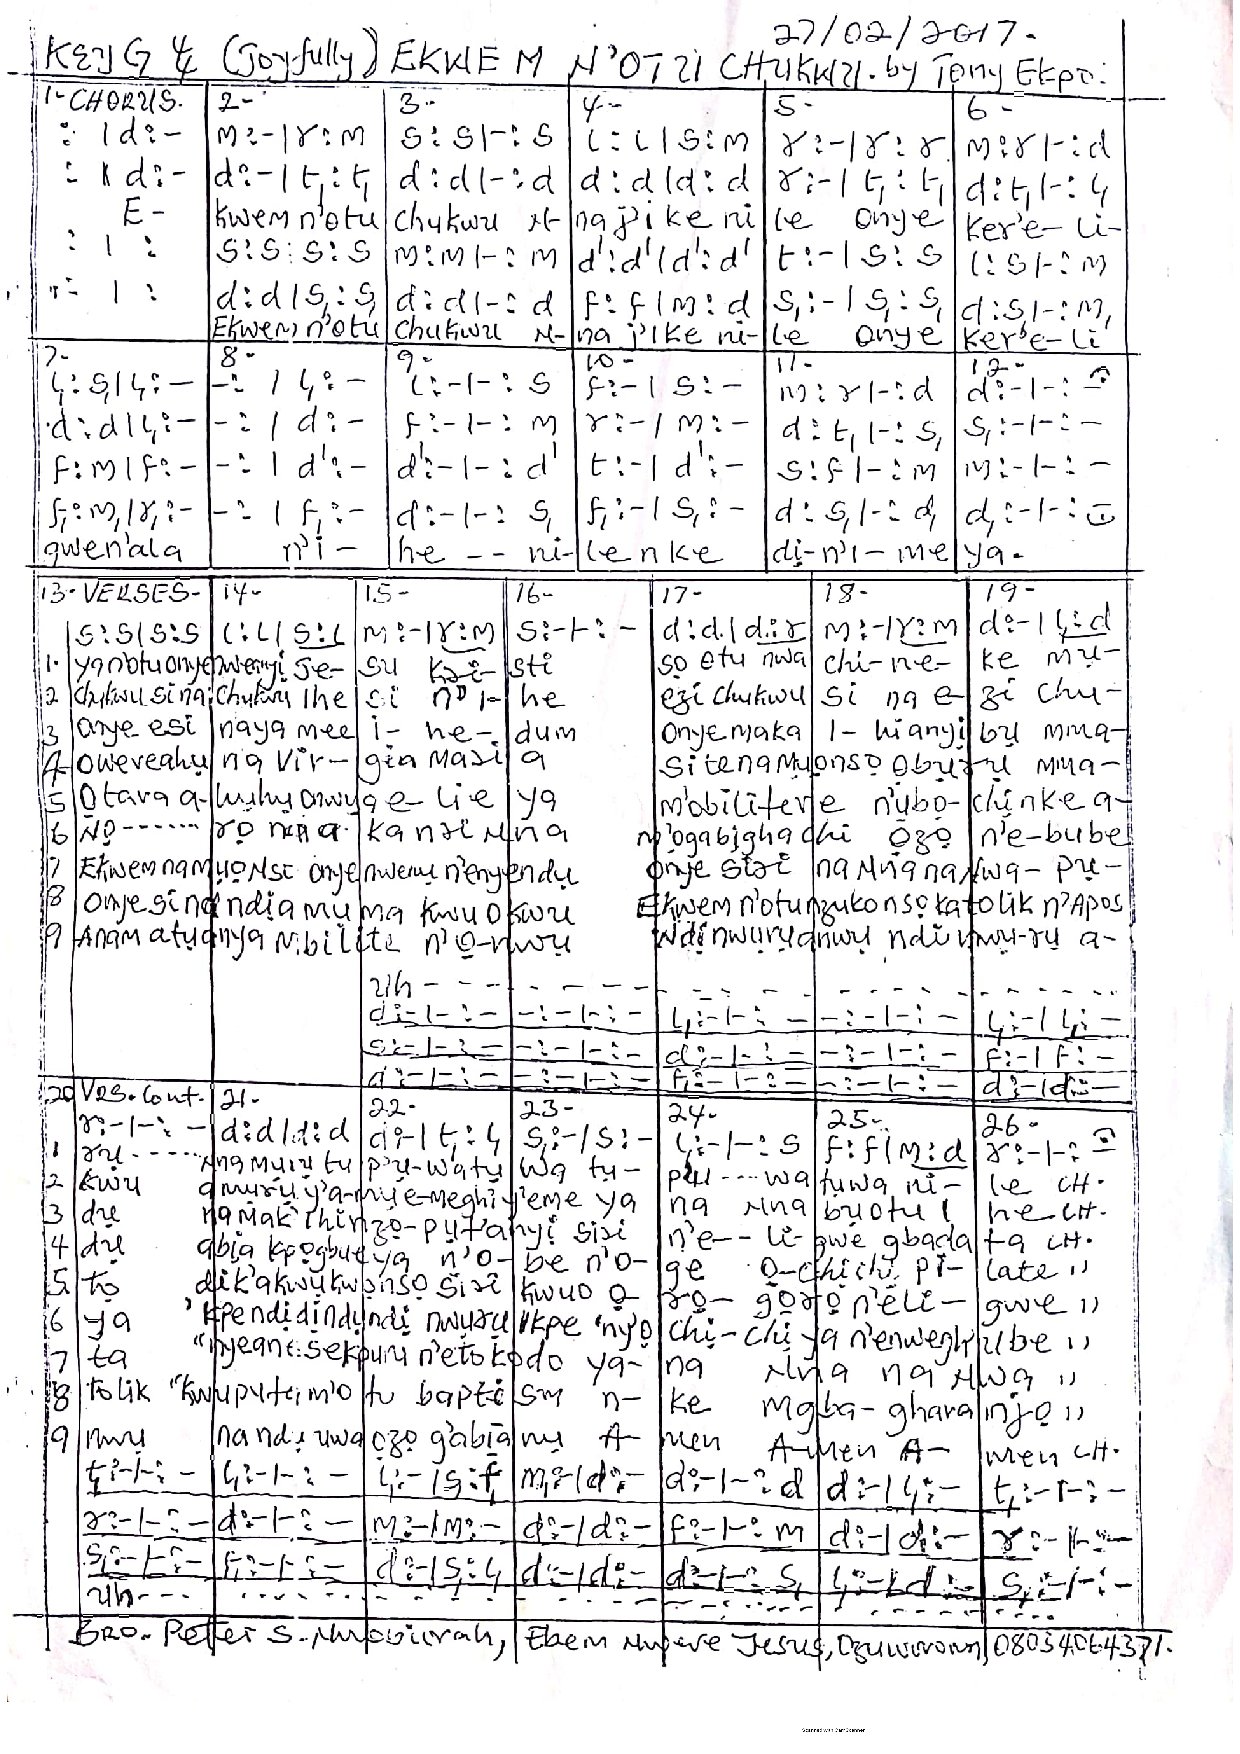 27/02/2017.
KEY G 4/4 (Joyfully) EKWEM N'OTU CHUKWU. by Tony Ekpo.
1- CHORUS. 2- 3- 4- 5- 6-
: | d:- m:-|r:m s:s|-:s l:l|s:m r:-|r:r m:r|-:d
: | d:- d:-|t,:t, d:d|-:d d:d|d:d r:-|t,:t, d:t,|-:l,
E- kwem n'otu chukwu N- na ji ke ni le onye ker'e- li-
: | : s:s:s:s m:m|-:m d':d'|d':d' t:-|s:s l:s|-:m
: | : d:d|s,:s, d:d|-:d f:f|m:d s,:-|s,:s, d:s,|-:m,
Ekwem n'otu chukwu N- na j'ike ni- le onye ker'e- li
7- 8- 9- 10- 11- 12-
l,:s,|l,:- -:|l,:- l:-|-:s f:-|s:- m:r|-:d d:-|-:-
d:d|l,:- -:|d:- f:-|-:m r:-|m:- d:t,|-:s, s,:-|-:-
f:m|f:- -:|d':- d':-|-:d' t:-|d':- s:f|-:m m:-|-:-
f,:m,|r,:- -:|f,:- d:-|-:s, f,:-|s,:- d:s,|-:d, d,:-|-:-
gwen'ala n'i- he -- ni- le nke di-n'i-me ya.
13- VERSES- 14- 15- 16- 17- 18- 19-
s:s|s:s l:l|s:l m:-|r:m s:-|-:- d:d|d:r m:-|r:m d:-|l,:d
1. ya n'otu onye nwenyi Je- su Kri- sti so otu nwa chi-ne- ke mu-
2 chukwu si na chukwu Ihe si n'I- he ezi chukwu si na e- zi chu-
3 onye esi naya mee i- he- dum onye maka I- hi anyi bu mma-
4 owereahu na Vir- gin Maria si te na Muonso oburu mma-
5 Otara a- huhu onwu ge- lie ya m'obilitere n'ubo- chi nke a-
6 No ------ ro n'a ka nri Nna n'ogabigha chi ozo n'e-bube
7 Ekwem na muo Nso onye nwenu n'enye ndu onye siri na Nna na Nwa- pu-
8 Onye si na ndi amuma kwu okwu Ekwem n'otu nzuko nso katolik n'Apos
9 Anam atu anya Mbilite n'o-nwu Ndi nwuru anwu ndi nwu-ru a-
Uh - - - - - - - -
d:-|-:- -:-|-:- l,:-|-:- -:-|-:- l,:-|l,:-
s:-|-:- -:-|-:- d:-|-:- -:-|-:- f:-|f:-
d:-|-:- -:-|-:- f,:-|-:- -:-|-:- d:-|d:-
20 Vrs. Cont. 21- 22- 23- 24- 25- 26-
r:-|-:- d:d|d:d d:-|t,:l, s,:-|s:- l,:-|-:s f:f|m:d r:-|-:-
1 ru ------ Nna muru tu p'u-wa tu wa tu- pu --- wa tuwa ni- le CH.
2 kwu amuru y'a-nye-meghi y'eme ya na Nna bu otu I he CH.
3 du na mak'Ihi nzo-puta nyi sisi n'e-- li- gwe gbada ta CH.
4 du abia kpogbue ya n'o- be n'o- ge o-chichi Pi- late "
5 to dik'akwukwo nso siri kwuo o- ro- goro n'eli- gwe "
6 ya 'kpe ndi di ndu ndi nwuru Ikpe 'nyo chi-chi ya n'enwegh' ube "
7 ta "inyeane: sekpuru n'eto kodo ya- na Nna na Nwa "
8 tolik "kwuputeim'o tu bapti sm n- ke Mgba- ghara njo "
9 nwu na ndu uwa ozo g'abia nu A- men A-men A- men CH.
t,:-|-:- l,:-|-:- l,:-|s,:f, m,:-|d:- d:-|-:d d:-|l,:- t,:-|-:-
r:-|-:- d:-|-:- m:-|m:- d:-|d:- f:-|-:m d:-|d:- r:-|-:-
s,:-|-:- f,:-|-:- d:-|s,:l, d:-|d:- d:-|-:s, l,:-|d:- s,:-|-:-
Uh- - - - - - - -
Bro. Peter S. Ebem Nwere Jesus, 08034064371.
Scanned with CamScanner